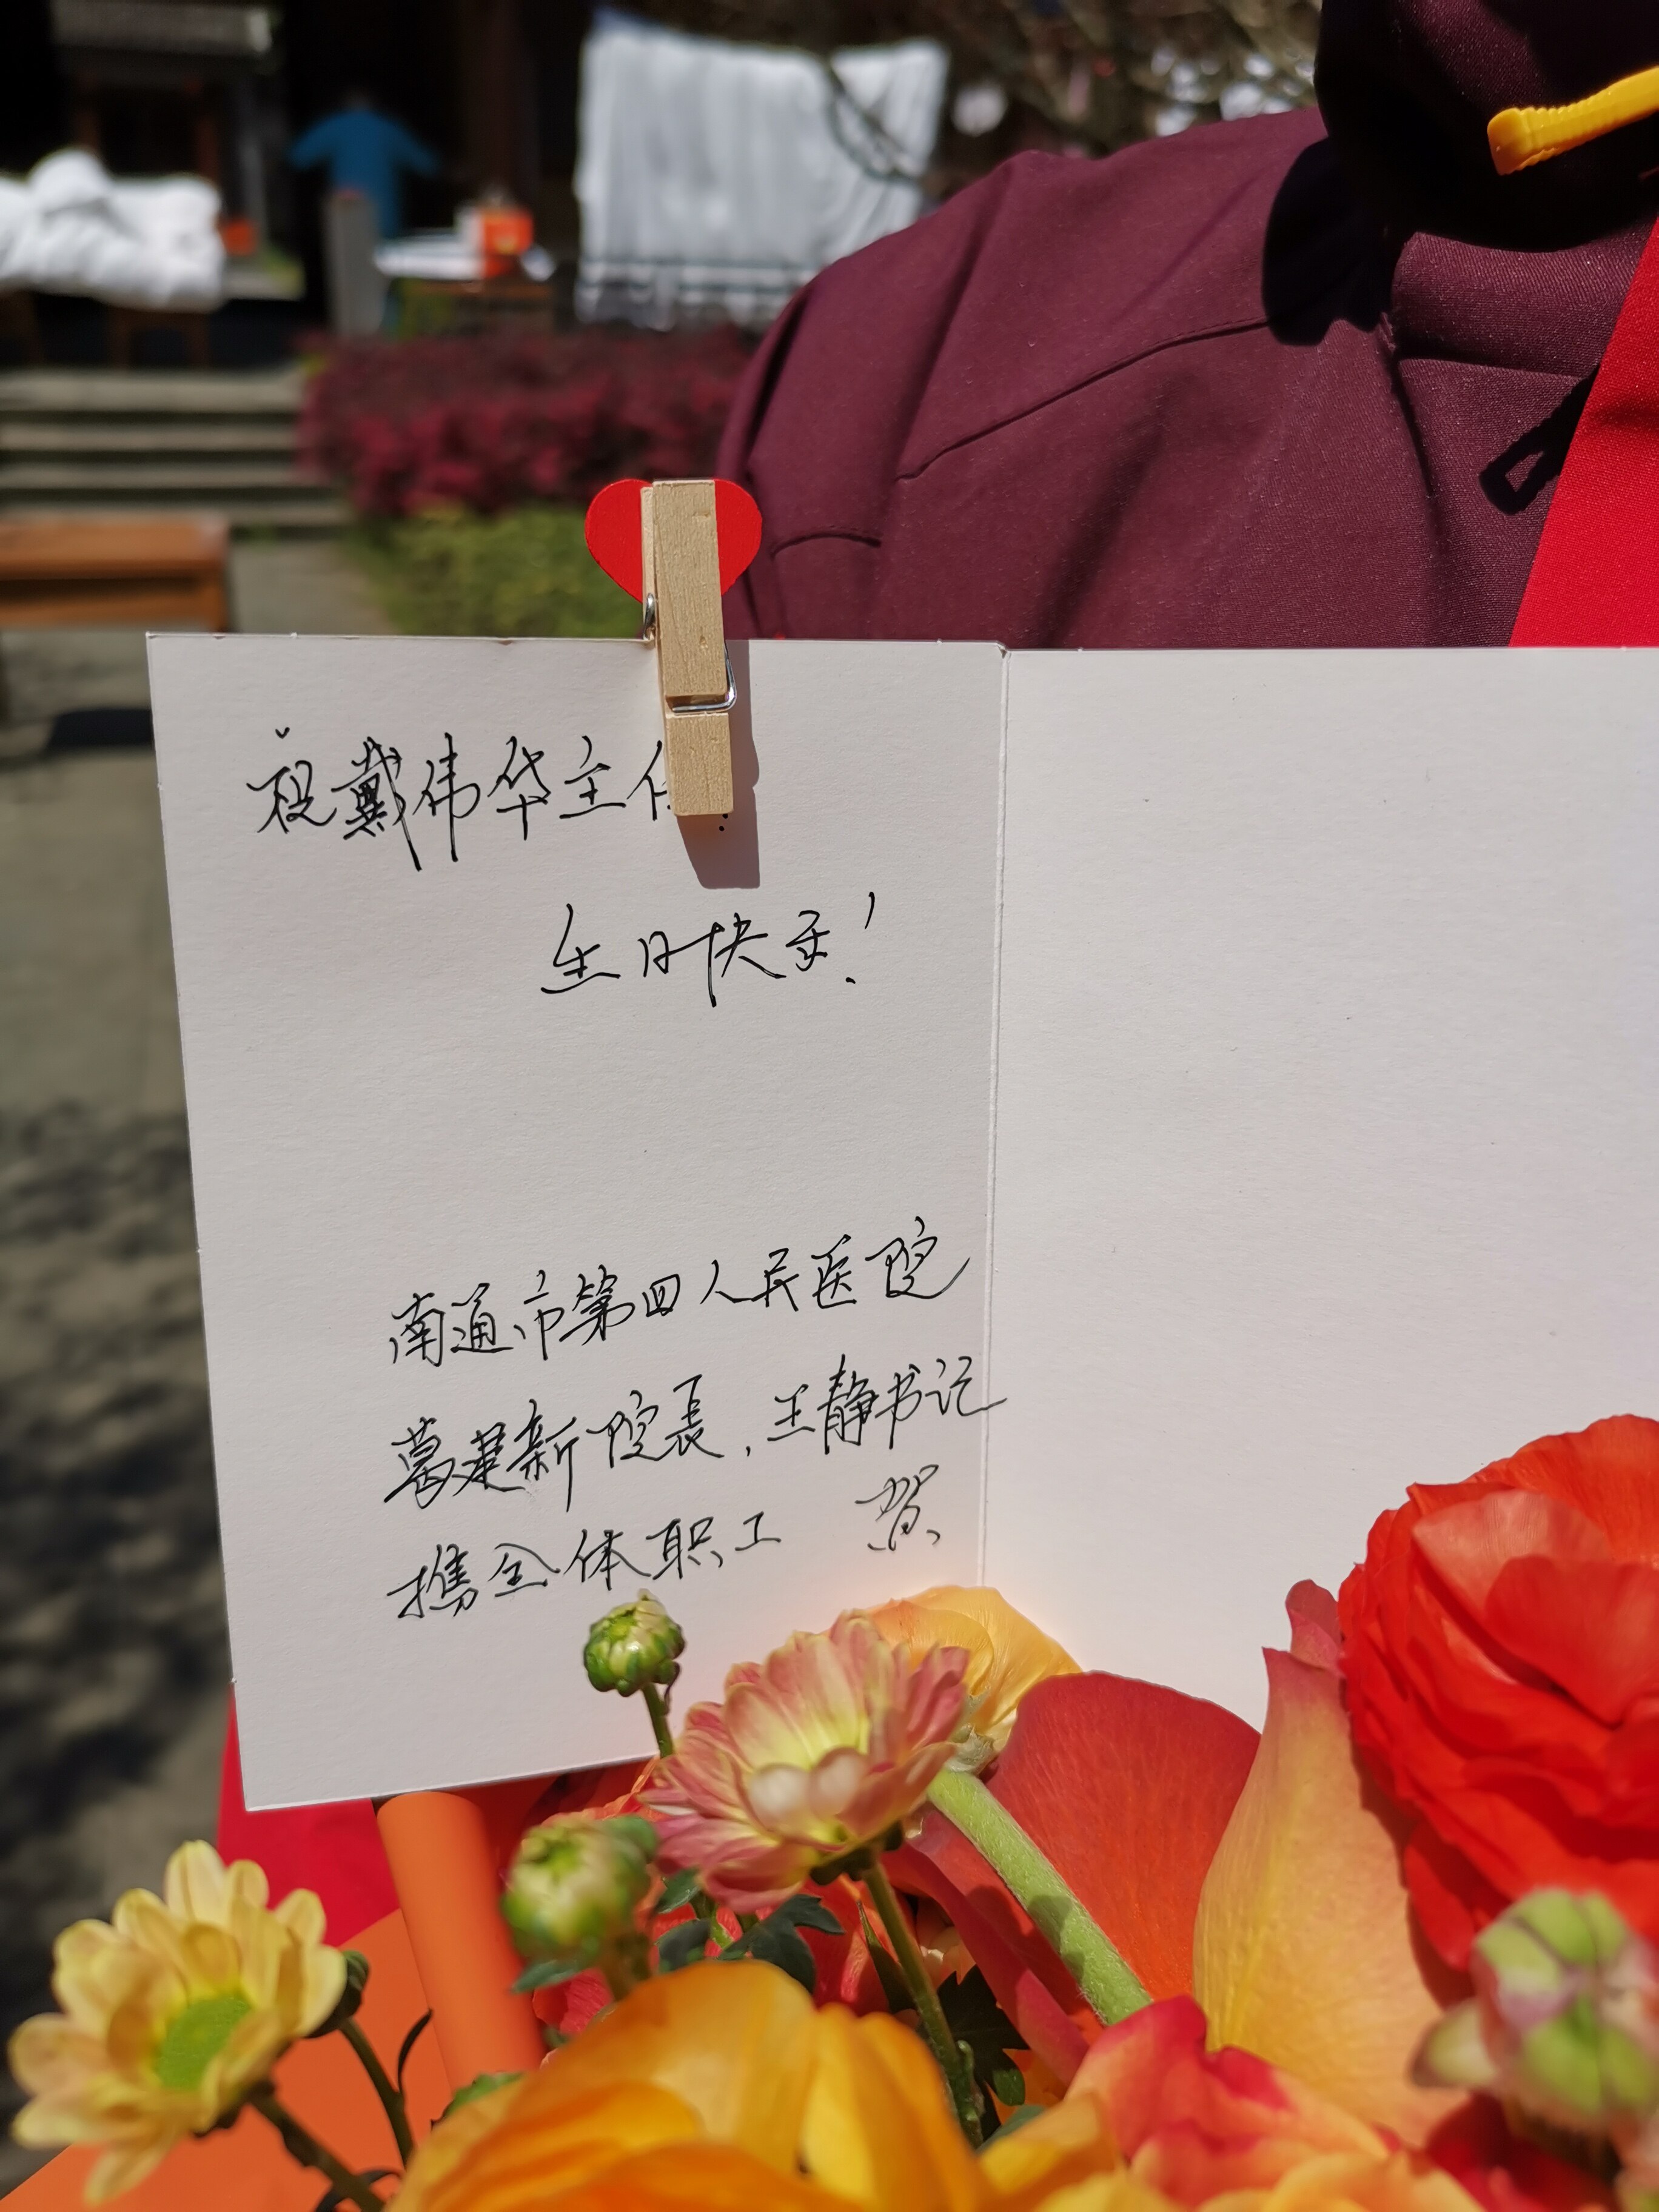 祝戴伟华主任:
生日快乐!
南通市第四人民医院
葛建新院长,王静书记
携全体职工 贺